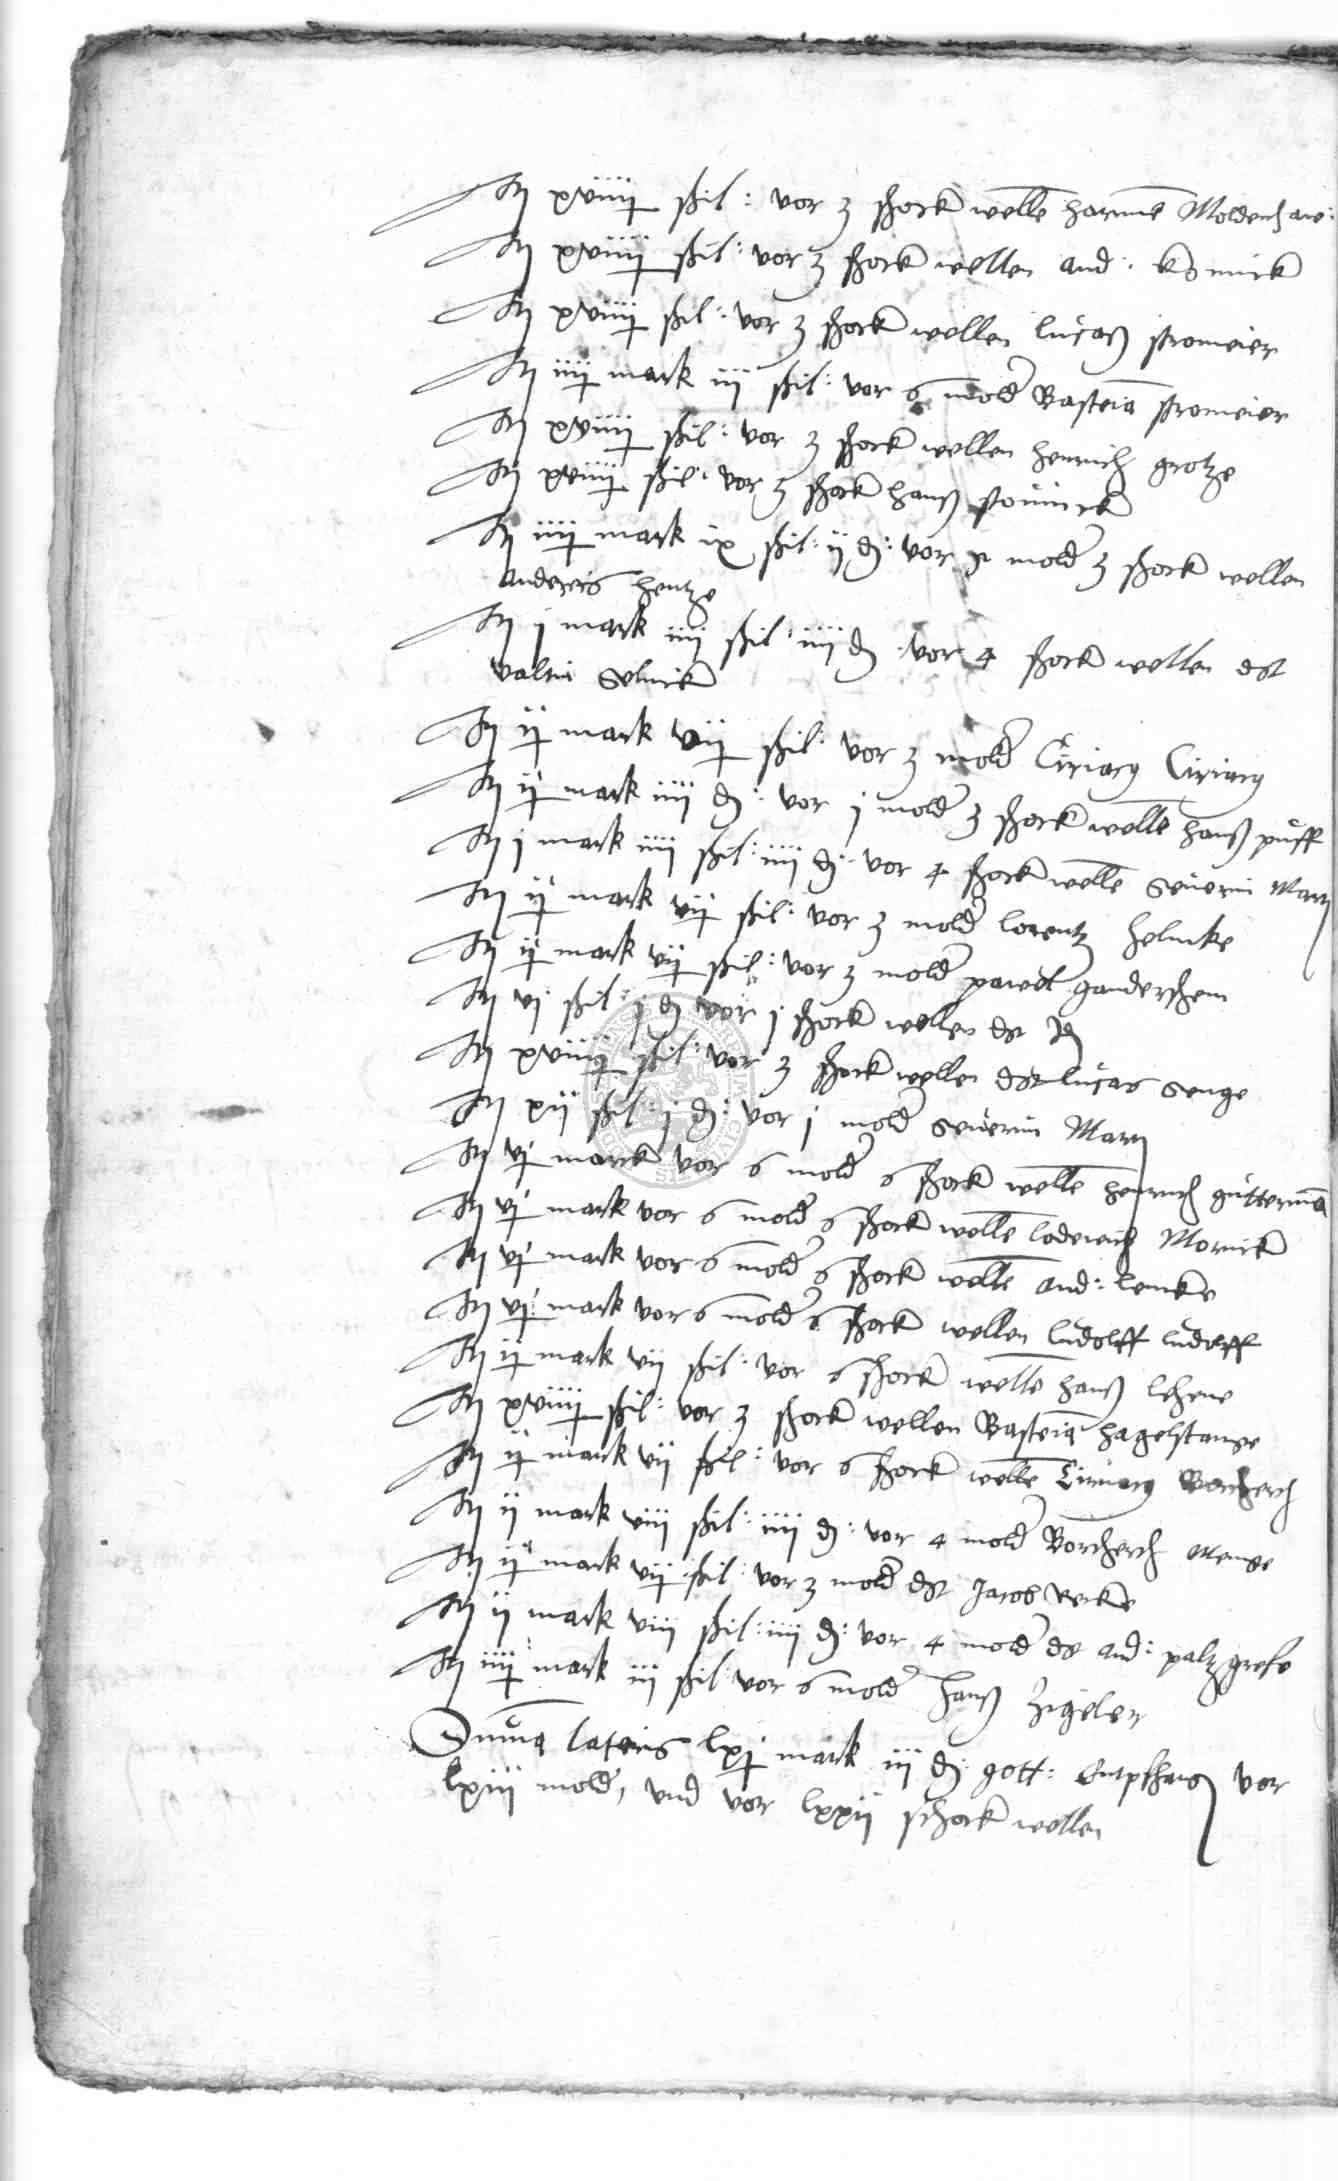 It xviiij ßil: vor 3 schock welle harmē Moldenhaw:
It xviiij ßil: vor 3 schock wellen and: konnick
It xviiij ßil: vor 3 schock wellen lucaß stromeier
It iiij mark iij ßil: vor 6 mold Basteiā stromeier
It xviiij ßil: vor 3 schock wellen henrich grotze
It xviiij ßil: vor 3 schock hanß
It iiij mark ix ßil: ij d: vor 5 mold 3 schock wellen
andereis hentze
It j mark iiij ßil: iiij d: vor 4 schock wellen dst
valtin
It ij mark vij ßil: vor 3 mold Ciriacy Ciriacy
It ij mark iiij d: vor j mold 3 schock welle hanß puff
It j mark iiij ßil: iiij d: vor 4 schock welle severin Marx
It ij mark vij ßil: vor 3 mold lorentz helmke
It ij mark vij ßil: vor 3 mold pawel gandershem
It vj ßil: j d vor j schock wellen dst
It xviiij ßil: vor 3 schock wellen dst lucas senge
It xij ßil: j d: vor j mold severin Marx
It vj marck vor 6 mold 6 schock welle henrich gutterman
It vj mark vor 6 mold 6 schock welle lodewich Mornick
It vj mark vor 6 mold 6 schock welle and: lemcke
It vj mark vor 6 mold 6 schock wellen ludolff ludolff
It ij mark vij ßil: vor 6 schock welle hanß lehene
It xviiij ßil: vor 3 schock wellen Basteiā hagelstange
It ij mark vij ßil: vor 6 schock welle Ciriacy Borcherch
It ij mark viij ßil: iiij d: vor 4 mold Borcherch Menge
It ij mark vij ßil: vor 3 mold dst Jacob
It ij mark viij ßil: iiij d: vor 4 mold ds and: paltzgrefe
It iiij mark iij ßil: vor 6 mold hanß Zigeler
Suma lateris lxj mark iij d: gott: Entpfhang vor
lxiij mold, und vor lxxij schock wellen